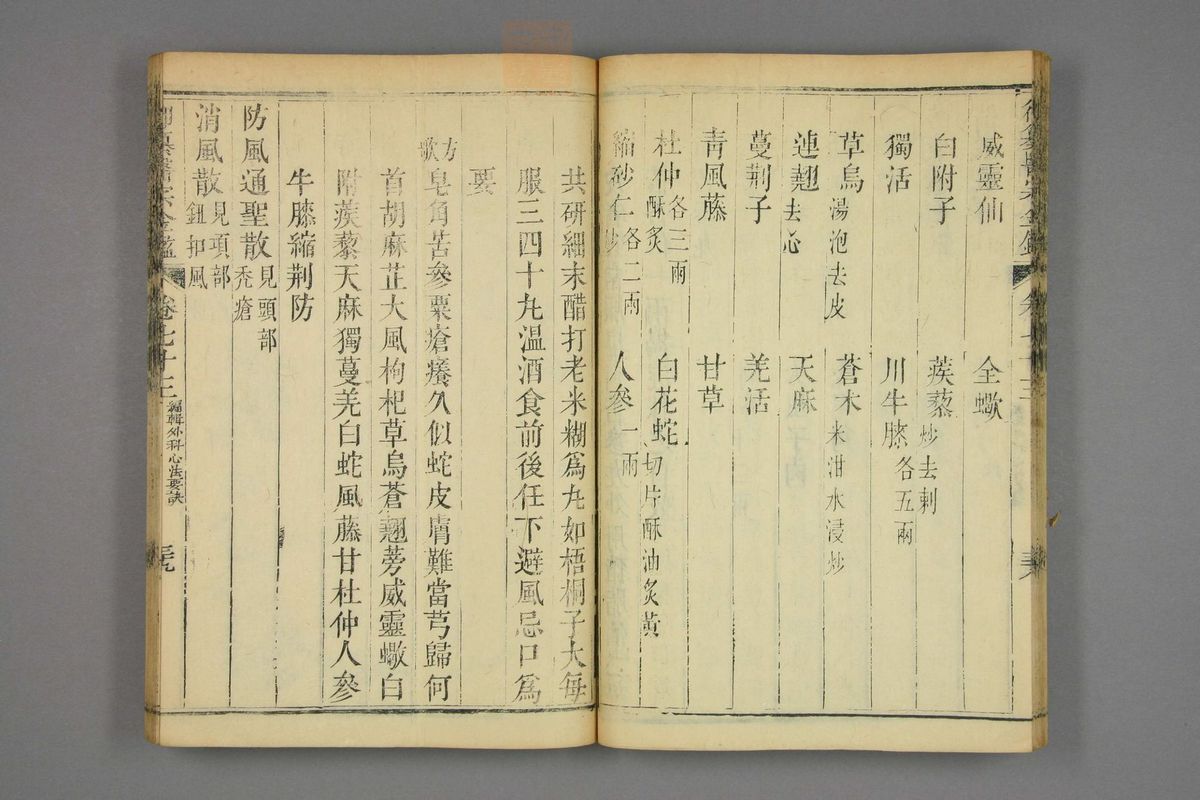 威靈仙　全蠍
白附子　蒺藜炒去刺
獨活　川牛膝各五兩
草烏湯泡去皮　蒼朮米泔水浸炒
連翹去心　天麻
蔓荊子　羌活
青風藤　甘草
杜仲酥炙各三兩　白花蛇切片酥油炙黃
縮砂仁炒各二兩　人參一兩
共研細末醋打老米糊爲丸如梧桐子大每
服三四十丸溫酒食前後任下避風忌口爲
要
方歌　皂角苦參粟瘡癢久似蛇皮膚難當芎歸何
首胡麻芷大風枸杞草烏蒼翹蒡威靈蠍白
附蒺藜天麻獨蔓羌白蛇風藤甘杜仲人參
牛膝縮荊防
防風通聖散見頭部禿瘡
消風散見項部鈕扣風
卷七十三 編輯外科心法要訣 三九